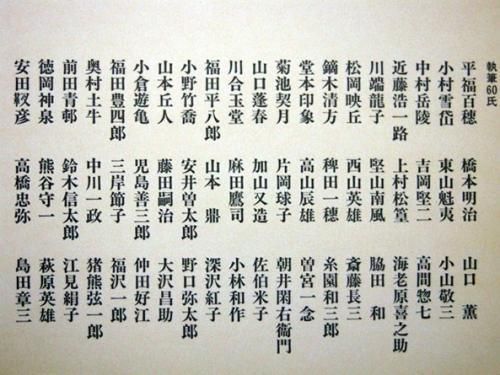 執筆60氏
平福百穂
小村雪岱
中村岳陵
近藤浩一路
川端龍子
松岡映丘
鏑木清方
堂本印象
菊池契月
山口蓬春
川合玉堂
福田平八郎
小野竹喬
山本丘人
小倉遊亀
福田豊四郎
奥村土牛
前田青邨
徳岡神泉
安田靫彦
橋本明治
東山魁夷
吉岡堅二
上村松篁
堅山南風
西山英雄
稗田一穂
高山辰雄
片岡球子
加山又造
麻田鷹司
山本 鼎
安井曽太郎
藤田嗣治
児島善三郎
三岸節子
中川一政
鈴木信太郎
熊谷守一
高橋忠弥
山口 薫
小山敬三
高間惣七
海老原喜之助
脇田 和
斎藤長三
糸園和三郎
曽宮一念
朝井閑右衛門
佐伯米子
小林和作
深沢紅子
野口弥太郎
大沢昌助
仲田好江
福沢一郎
猪熊弦一郎
江見絹子
萩原英雄
島田章三